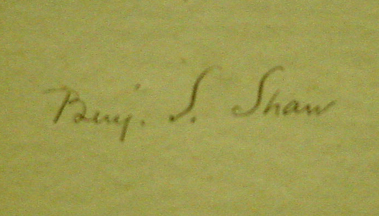 Benj. S. Shaw